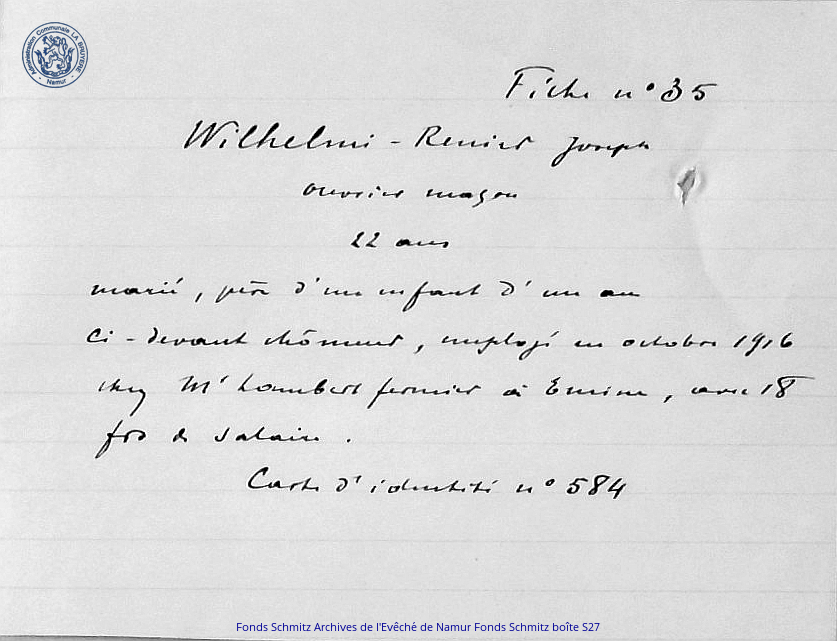 Administration Communale LA BRUYERE
- Namur -
Fiche n° 35
Wilhelmi - Renier Joseph
ouvrier maçon
22 ans
marié, père d'un enfant d'un an
Ci-devant chômeur, employé en octobre 1916
chez Mr Lambert fermier à Emine, avec 18
frs de salaire.
Carte d'identité n° 584
Fonds Schmitz Archives de l'Evêché de Namur Fonds Schmitz boîte S27